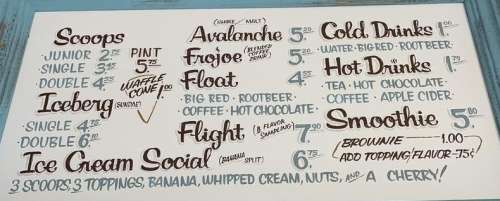 Scoops
JUNIOR 2.75
SINGLE 3.45
DOUBLE 4.35
PINT
5.75
WAFFLE
CONE 1.00
Iceberg (SUNDAE)
SINGLE 4.75
DOUBLE 6.00
Ice Cream Social (BANANA SPLIT) 6.75
3 SCOOPS, 3 TOPPINGS, BANANA, WHIPPED CREAM, NUTS, AND A CHERRY!
(SHAKE / MALT)
Avalanche 5.20
Frojoe (BLENDED COFFEE DRINK) 5.20
Float 4.35
BIG RED · ROOTBEER
COFFEE · HOT CHOCOLATE
Flight (8 FLAVOR SAMPLING) 7.90
Cold Drinks 1.00
WATER · BIG RED · ROOT BEER
Hot Drinks 1.79
TEA · HOT CHOCOLATE
COFFEE · APPLE CIDER
Smoothie 5.80
BROWNIE 1.00
ADD TOPPING/FLAVOR - 75¢